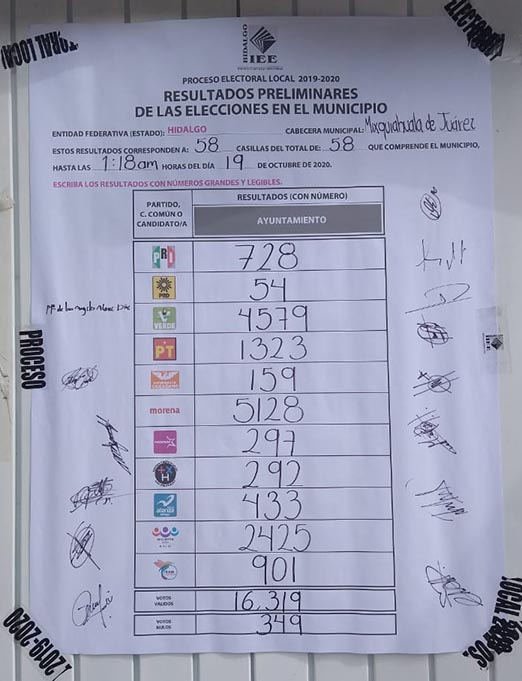 HIDALGO
IEE
PROCESO ELECTORAL LOCAL 2019-2020
RESULTADOS PRELIMINARES
DE LAS ELECCIONES EN EL MUNICIPIO
ENTIDAD FEDERATIVA (ESTADO): HIDALGO CABECERA MUNICIPAL: Mixquiahuala de Juárez
ESTOS RESULTADOS CORRESPONDEN A: 58 CASILLAS DEL TOTAL DE: 58 QUE COMPRENDE EL MUNICIPIO,
HASTA LAS 1:18am HORAS DEL DÍA 19 DE OCTUBRE DE 2020.
ESCRIBA LOS RESULTADOS CON NÚMEROS GRANDES Y LEGIBLES.
PARTIDO, C. COMÚN O CANDIDATO/A
RESULTADOS (CON NÚMERO)
AYUNTAMIENTO
PRI 728
PRD 54
VERDE 4579
PT 1323
159
morena 5128
297
H 292
alianza 433
2425
901
VOTOS VÁLIDOS 16,319
VOTOS NULOS 349
PROCESO
2019-2020